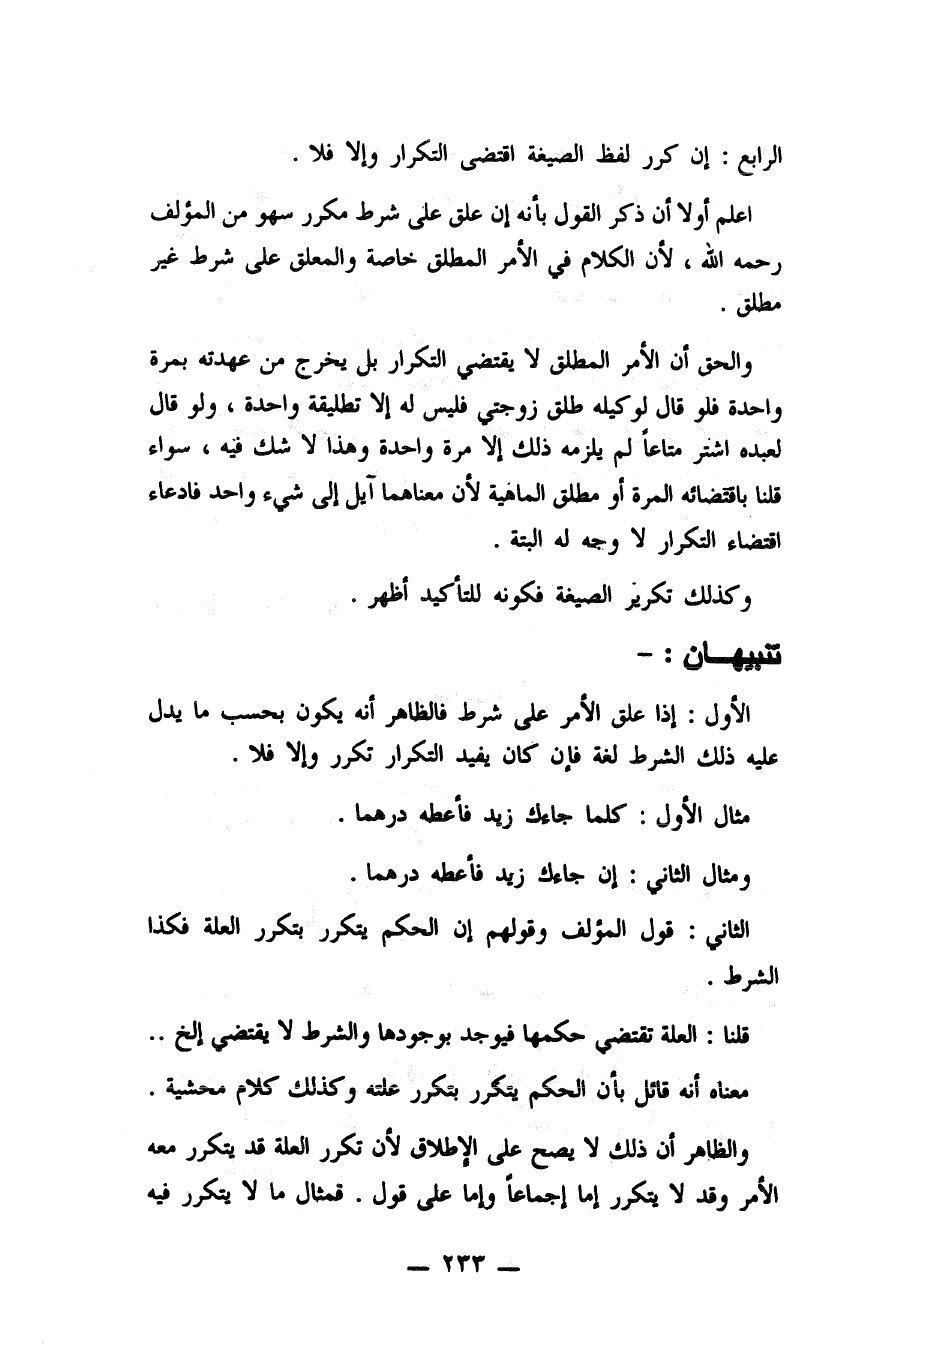 الرابع : إن كرر لفظ الصيغة اقتضى التكرار وإلا فلا .
اعلم أولا أن ذكر القول بأنه إن علق على شرط مكرر سهو من المؤلف
رحمه الله ، لأن الكلام في الأمر المطلق خاصة والمعلق على شرط غير
مطلق .
والحق أن الأمر المطلق لا يقتضي التكرار بل يخرج من عهدته بمرة
واحدة فلو قال لوكيله طلق زوجتي فليس له إلا تطليقة واحدة ، ولو قال
لعبده اشتر متاعاً لم يلزمه ذلك إلا مرة واحدة وهذا لا شك فيه ، سواء
قلنا باقتضائه المرة أو مطلق الماهية لأن معناهما آيل إلى شيء واحد فادعاء
اقتضاء التكرار لا وجه له البتة .
وكذلك تكرير الصيغة فكونه للتأكيد أظهر .
تنبيهـــان : –
الأول : إذا علق الأمر على شرط فالظاهر أنه يكون بحسب ما يدل
عليه ذلك الشرط لغة فإن كان يفيد التكرار تكرر وإلا فلا .
مثال الأول : كلما جاءك زيد فأعطه درهما .
ومثال الثاني : إن جاءك زيد فأعطه درهما .
الثاني : قول المؤلف وقولهم إن الحكم يتكرر بتكرر العلة فكذا
الشرط .
قلنا : العلة تقتضي حكمها فيوجد بوجودها والشرط لا يقتضي إلخ ..
معناه أنه قائل بأن الحكم يتكرر بتكرر علته وكذلك كلام محشية .
والظاهر أن ذلك لا يصح على الإطلاق لأن تكرر العلة قد يتكرر معه
الأمر وقد لا يتكرر إما إجماعاً وإما على قول . فمثال ما لا يتكرر فيه
— ٢٣٣ —